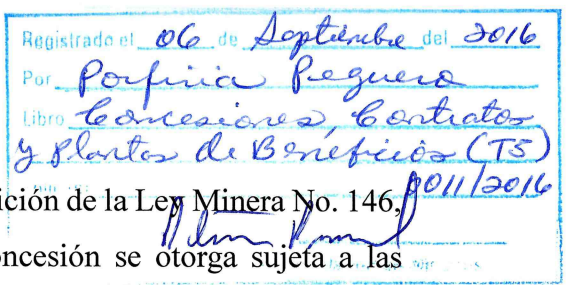 Registrado el 06 de Septiembre del 2016
Por Porfiria Peguero
Libro Concesiones, Contratos
y Plantas de Beneficios (T5)
0011/2016
ición de la Ley Minera No. 146,
oncesión se otorga sujeta a las